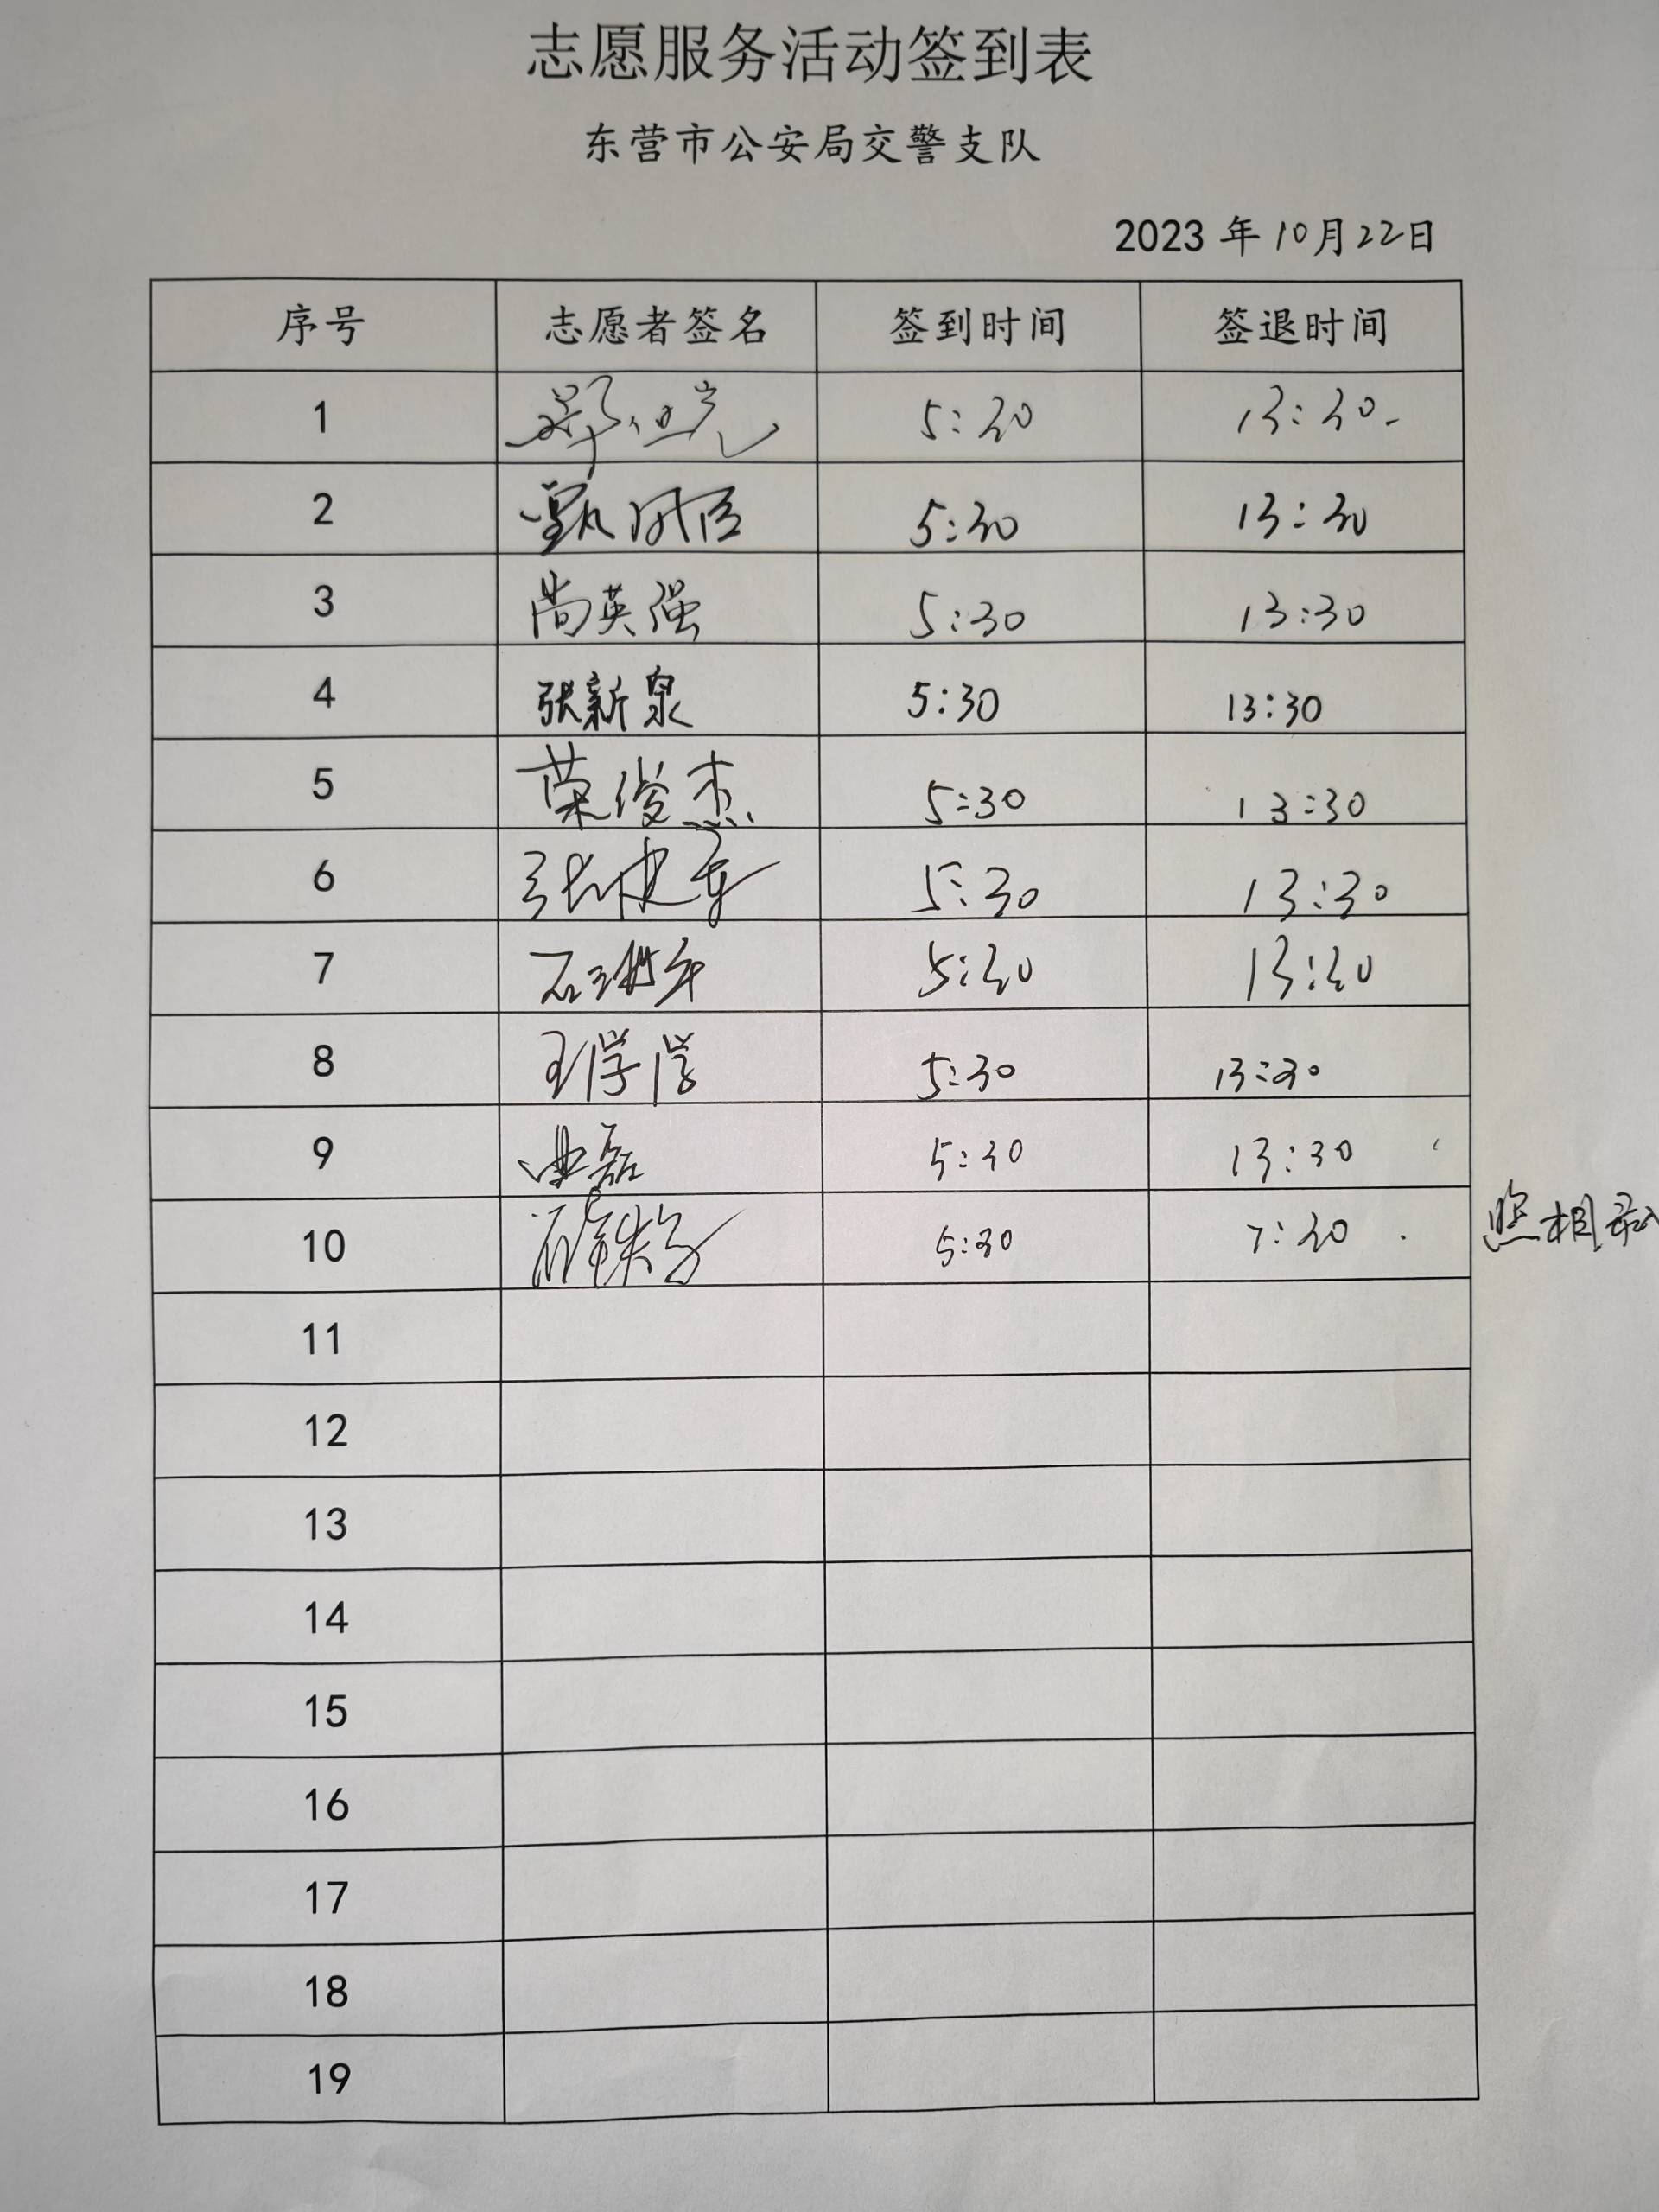 志愿服务活动签到表
东营市公安局交警支队
2023 年 10月22日
序号 志愿者签名 签到时间 签退时间
1 5:30 13:30
2 5:30 13:30
3 尚英强 5:30 13:30
4 张新泉 5:30 13:30
5 荣俊杰 5:30 13:30
6 5:30 13:30
7 5:30 13:30
8 5:30 13:30
9 曲磊 5:30 13:30
10 5:30 7:30 照相
11
12
13
14
15
16
17
18
19